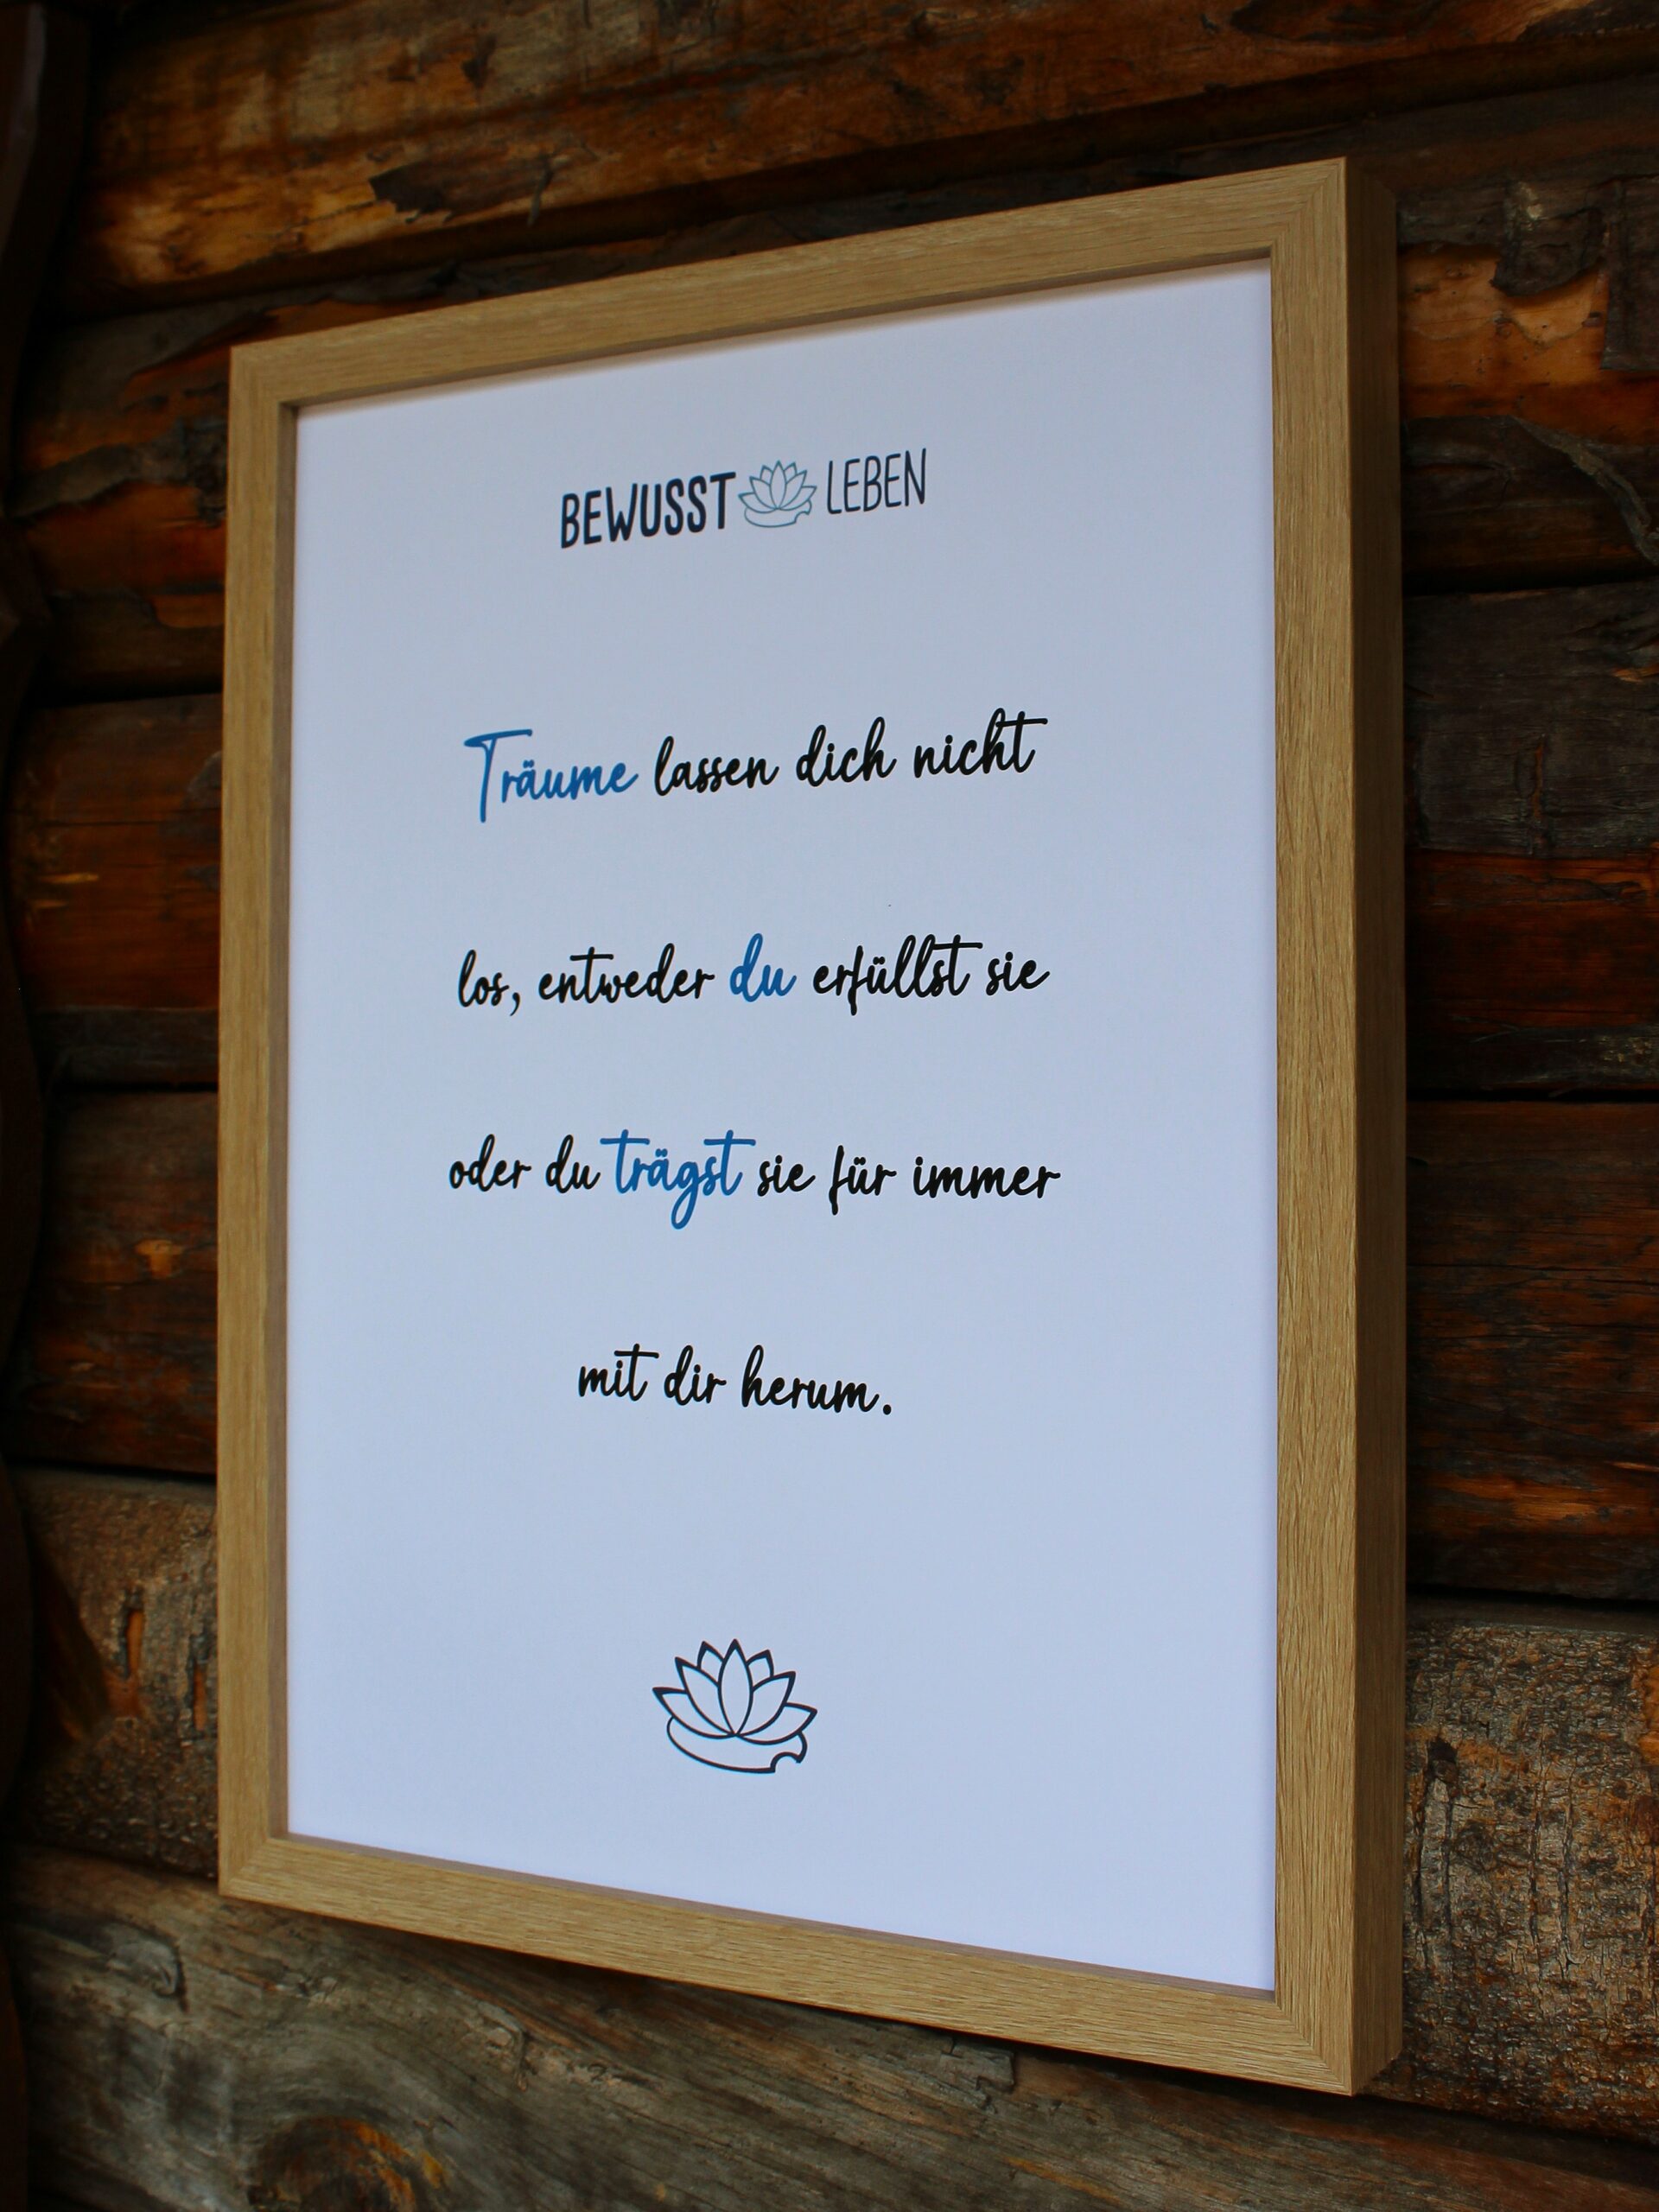 BEWUSST LEBEN
Träume lassen dich nicht
los, entweder du erfüllst sie
oder du trägst sie für immer
mit dir herum.